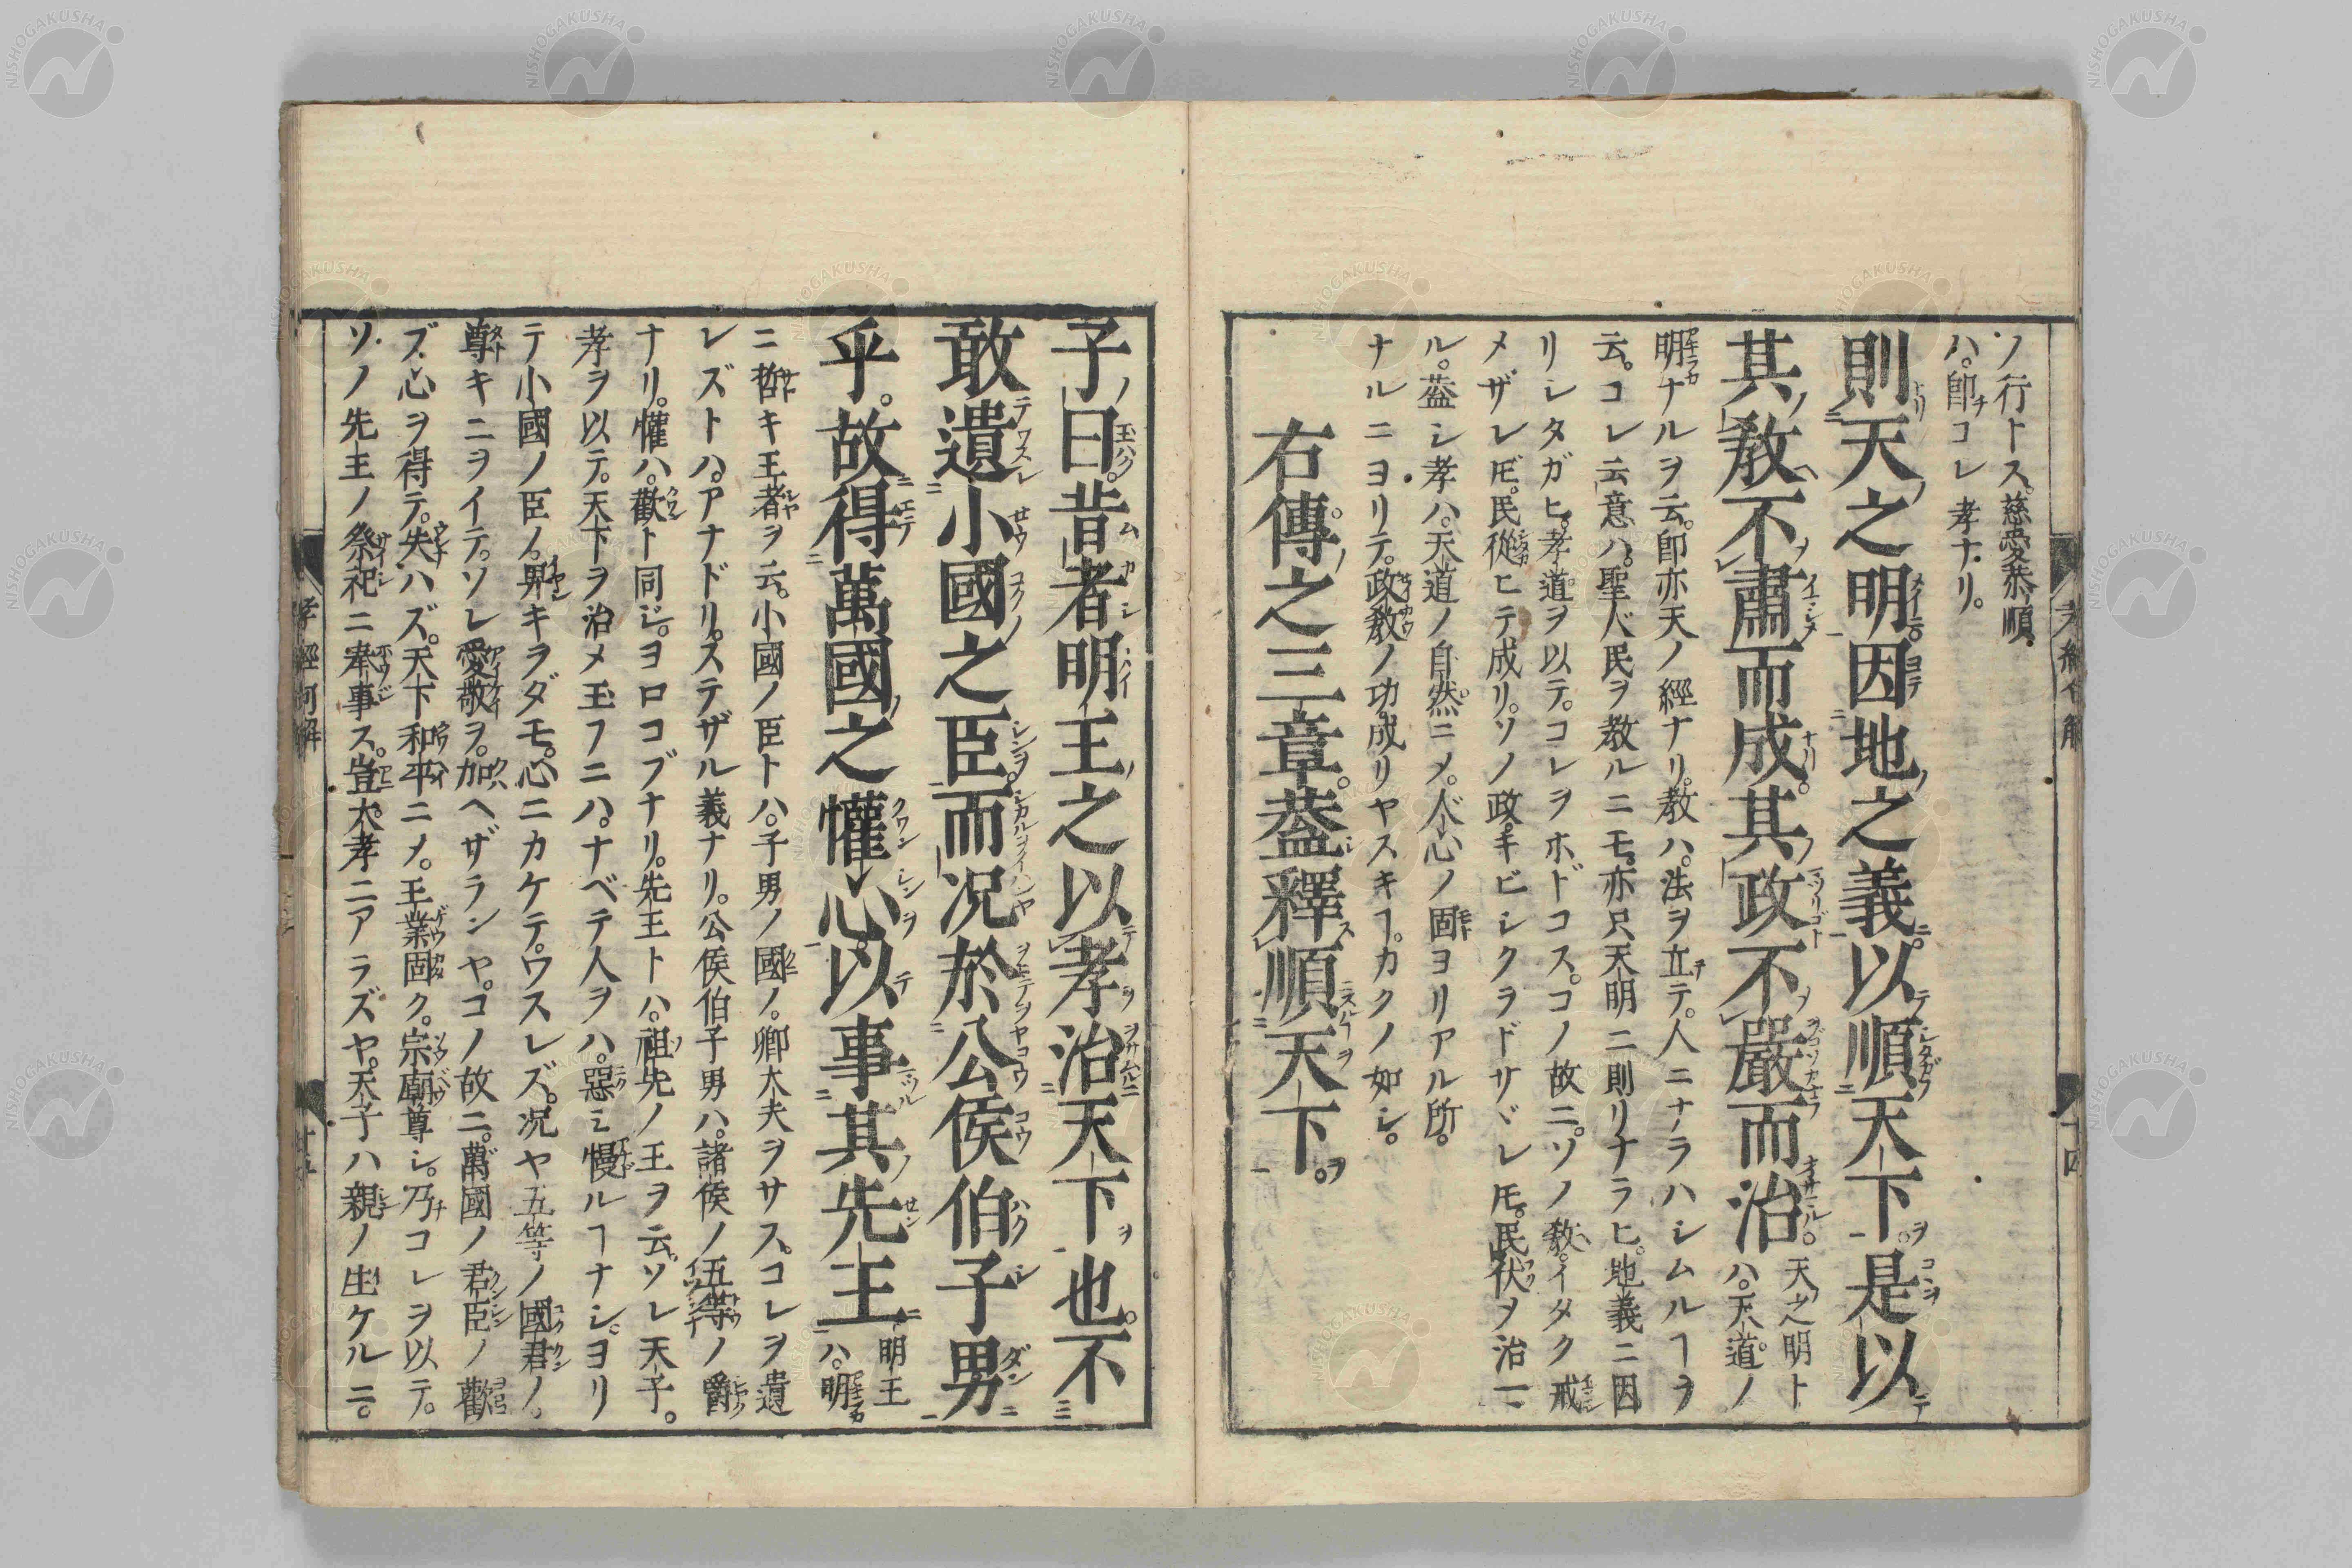 ノ行トス。慈愛恭順、
ハ。即コレ孝ナリ。
則天之明因地之義以順天下。是以
其教不肅而成。其政不嚴而治。天之明ト
ハ。天道ノ
明ナルヲ云。即亦天ノ經ナリ。教ハ。法ヲ立テ。人ニナラハシムルヿヲ
云。コレ云意ハ。聖人民ヲ教ルニモ。亦只天明ニ則リナラヒ。地義ニ因
リシタガヒ。孝道ヲ以テ。コレヲホドコス。コノ故ニ。ソノ教。イタク戒
メザレ𪜈。民從ヒテ成リ。ソノ政。キビシクラドサヾレ𪜈。民伏ヲ治ー
ル。蓋シ孝ハ。天道ノ自然ニメ。人心ノ固ヨリアル所。
ナルニヨリテ。政教ノ功。成リヤスキヿ。カクノ如シ。
右傳之三章。蓋釋順天下。
子曰。昔者明王之以孝治天下也。不
敢遺小國之臣。而況於公侯伯子男
乎。故得萬國之懽心。以事其先王 明王
ハ。明
ニ哲キ王者ヲ云。小國ノ臣トハ。子男ノ國ノ。卿大夫ヲサス。コレヲ遺
レズトハ。アナドリ。ステザル義ナリ。公侯伯子男ハ。諸侯ノ五等ノ爵
ナリ。懽ハ。歡ト同ジ。ヨロコブナリ。先王トハ。祖先ノ王ヲ云。ソレ天子。
孝ヲ以テ。天下ヲ治メ玉フニハ。ナベテ人ヲハ。惡ミ慢ルヿナシ。ヨリ
テ小國ノ臣ノ。畀キヲダモ。心ニカケテ。ウスレズ。況ヤ五等ノ國君ノ。
尊キニヲイテ。ソレ愛敬ヲ。加ヘザランヤ。コノ故ニ。萬國ノ君臣ノ歡
ズ心ヲ得テ。失ハズ。天下和平ニメ。王業固ク。宗廟尊シ。乃コレヲ以テ。
ソノ先王ノ祭祀ニ奉事ス。豈大孝ニアラズヤ。天子ハ親ノ生ケルニ。